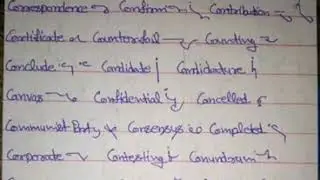 Correspondence Confirm Contribution
Certificate or Counterfoil Counting
Conclude Candidate Candidature
Canvas Confidential Cancelled
Communist Party Consensys Completed
Corporate Contesting Conundrum